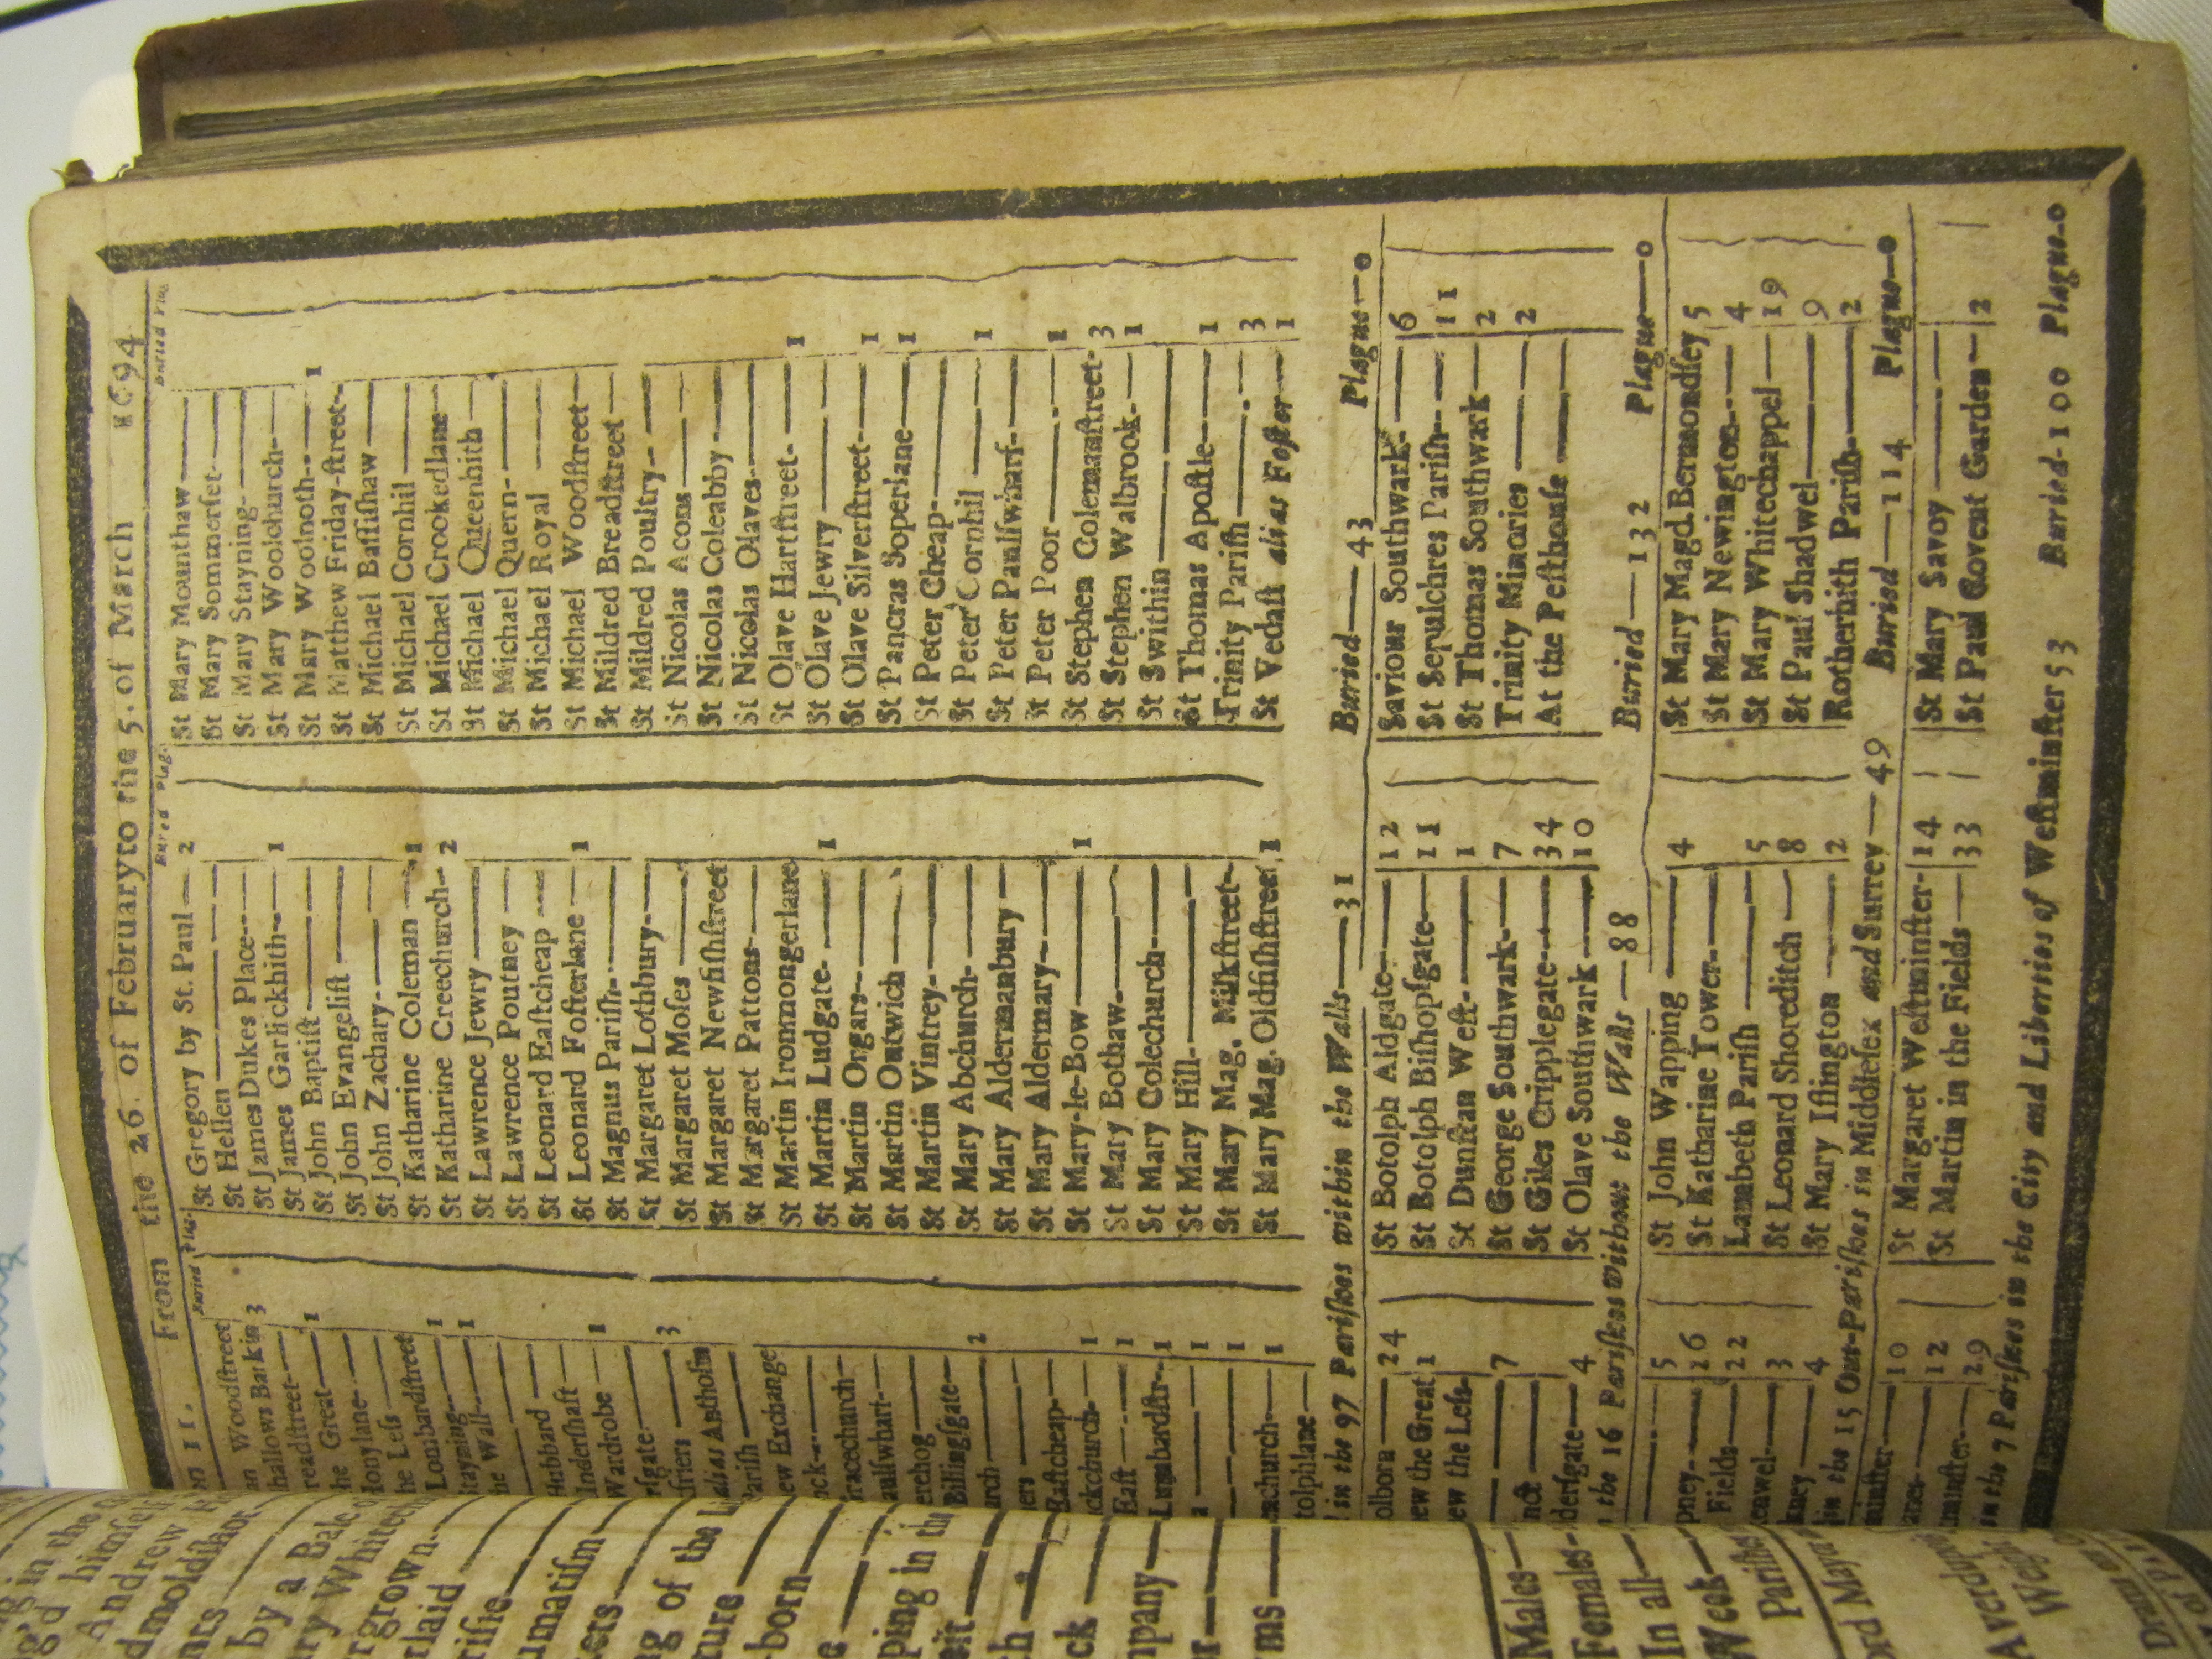 From the 26. of February to the 5. of March 1694
Buried Plag.
Woodstreet
hallows Barkin 3
readstreet
he Great 1
Honylane
he Less
Lombardstreet 1
Stayning 1
he Wall
Hubbard
Undershaft
Wardrobe 1
rsgate
friers 3
alias Antholin
Parish
ew Exchange
ock
racechurch
aulswharf
erchog
Billingsgate
urch 2
ers
Eastcheap
ackchurch 1
East 1
Lumbardstr. 1
1
1
achurch 1
tolphlane
Buried Plag.
St Gregory by St. Paul 2
St Hellen
St James Dukes Place
St James Garlickhith 1
St John Baptist
St John Evangelist
St John Zachary
St Katharine Coleman 1
St Katharine Creechurch 2
St Lawrence Jewry
St Lawrence Poutney
St Leonard Eastcheap
St Leonard Fosterlane 1
St Magnus Parish
St Margaret Lothbury
St Margaret Moses
St Margaret Newfishstreet
St Margaret Pattons
St Martin Ironmongerlane
St Martin Ludgate 1
St Martin Orgars
St Martin Outwich
St Martin Vintrey
St Mary Abchurch
St Mary Aldermanbury
St Mary Aldermary
St Mary-le-Bow 1
St Mary Bothaw
St Mary Colechurch
St Mary Hill
St Mary Mag. Milkstreet
St Mary Mag. Oldfishstreet 1
Buried Plag.
St Mary Mounthaw
St Mary Sommerset
St Mary Stayning
St Mary Woolchurch
St Mary Woolnoth 1
St Matthew Friday-street
St Michael Bassishaw
St Michael Cornhil
St Michael Crookedlane
St Michael Queenhith
St Michael Quern
St Michael Royal
St Michael Woodstreet
St Mildred Breadstreet
St Mildred Poultry
St Nicolas Acons
St Nicolas Coleabby
St Nicolas Olaves
St Olave Hartstreet 1
St Olave Jewry
St Olave Silverstreet 1
St Pancras Soperlane 1
St Peter Cheap
St Peter Cornhil 1
St Peter Paulswharf
St Peter Poor 1
St Stephen Colemanstreet 3
St Stephen Walbrook 1
St Swithin
St Thomas Apostle 1
Trinity Parish 3
St Vedast alias Foster 1
in the 97 Parishes within the Walls—31 Buried—43 Plague—0
olborn 24
ew the Great 1
ew the Less
7
nct
dersgate 4
St Botolph Aldgate 12
St Botolph Bishopsgate 11
St Dunstan West 1
St George Southwark 7
St Giles Cripplegate 34
St Olave Southwark 10
Saviour Southwark 6
St Sepulchres Parish 11
St Thomas Southwark 2
Trinity Minories 2
At the Pesthouse
the 16 Parishes without the Walls—88 Buried—132 Plague—0
5
pney 26
Fields 22
kenwel 3
kney 4
St John Wapping 4
St Katharine Tower
Lambeth Parish 5
St Leonard Shoreditch 8
St Mary Islington 2
St Mary Magd. Bermondsey 5
St Mary Newington 4
St Mary Whitechappel 19
St Paul Shadwel 9
Rotherhith Parish 2
in the 15 Out-Parishes in Middlesex and Surrey—49 Buried—114 Plague—0
minster 10
anes 12
minster 29
St Margaret Westminster 14
St Martin in the Fields 33
St Mary Savoy
St Paul Covent Garden 2
in the 7 Parishes in the City and Liberties of Westminster 53 Buried-100 Plague-0
g in the
g'd himself
Andrew
dmoldishot
nrs
by a Bale
ry White
rgrown
rlaid
rise
umatism
ers
ng of the
ture
-born
e
ping in the
eit
ch
ck
mpany
r
ms
Males
Females
In all
Week
Parishes
ord Mayor
Averdupois
Weigh
Dram